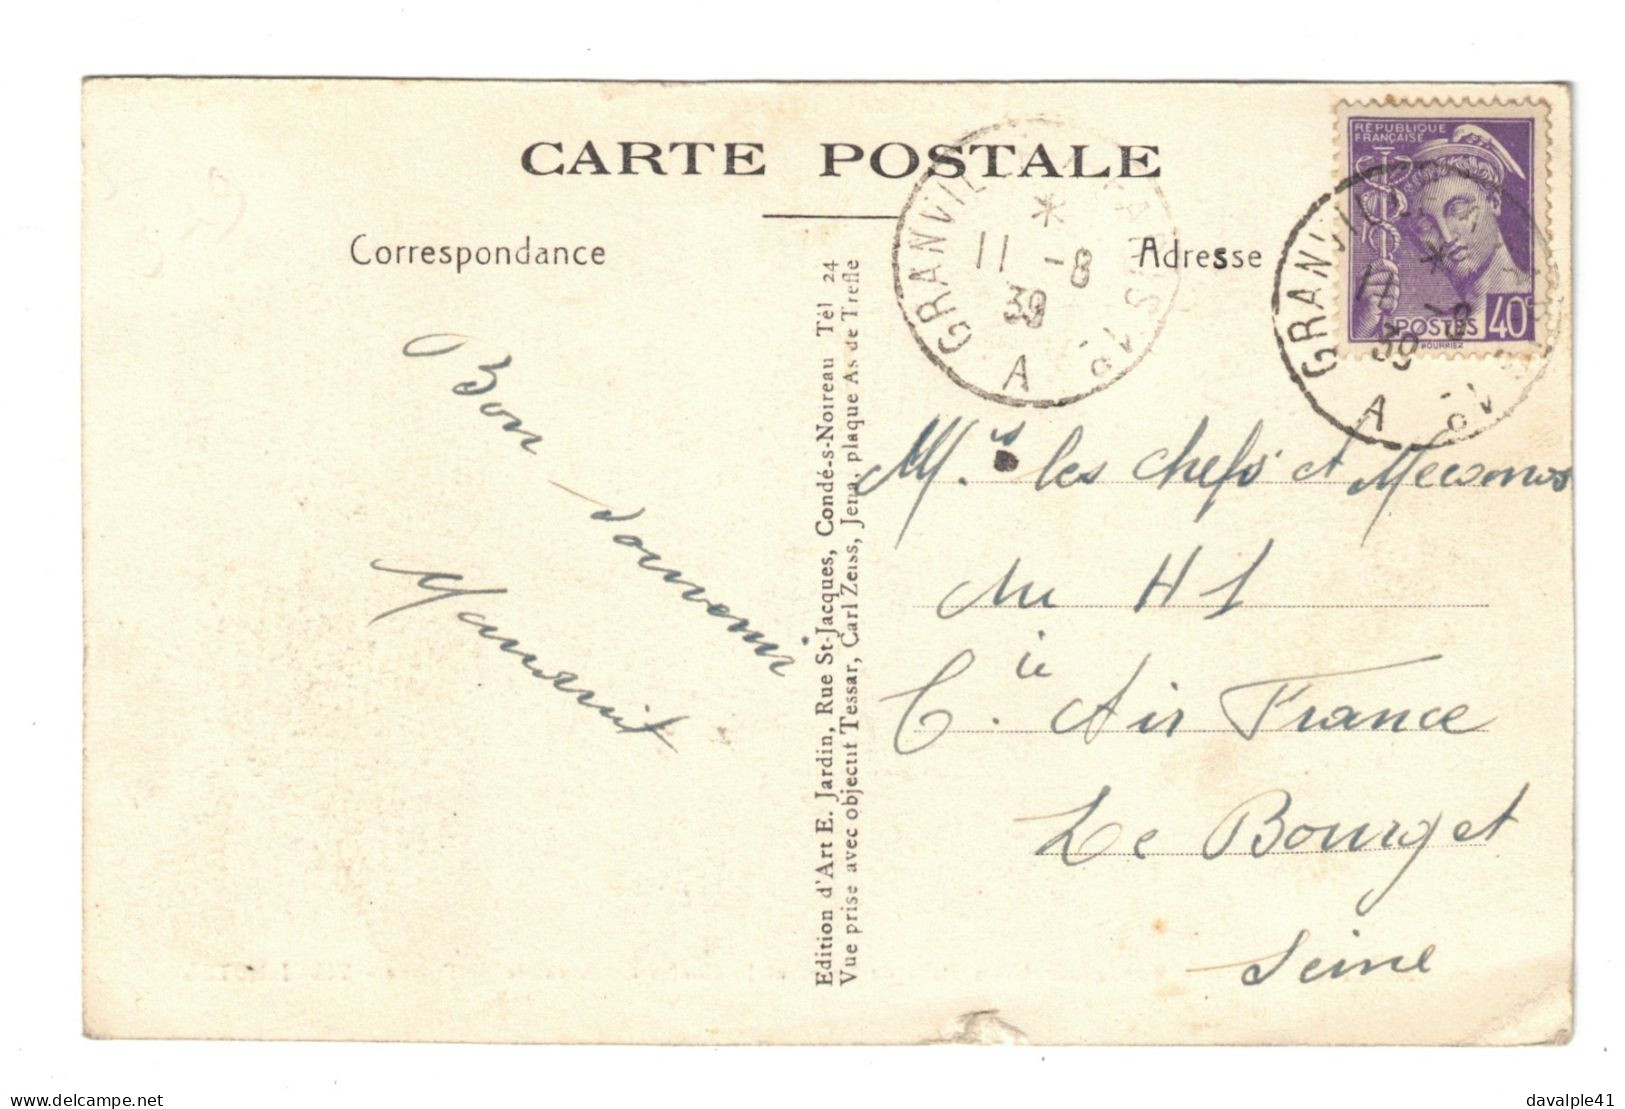 CARTE POSTALE
Correspondance
Adresse
RÉPUBLIQUE
FRANÇAISE
POSTES 40c
GRANVIL
11 -8
39
A
GRANVIL
11 -8
39
A
Bon souvenir
Edition d'Art E. Jardin, Rue St-Jacques, Condé-s-Noireau Tél 24
Vue prise avec objectif Tessar, Carl Zeiss, Jena, plaque As de Trefle
M.rs les chefs et Mecanos
du H 1
C.ie Air France
Le Bourget
Seine
delcampe.net
davalple41